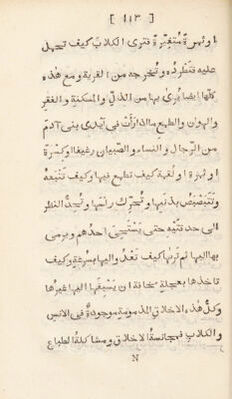 [ ١١٣ ]
او نهرة مُتغيّرة فترى الكلاب كيف تحمل
عليه فتطرده وتخرجه من القرية ومع هذه
كلّها ايضا يُرى بها من الذلّ والمسكنة والفقر
والهوان والطمع ما اذا رأت في ايدى بنى آدم
من الرّجال والنساء والصّبيان رغيفا او كسرة
او تمرة او لقمة كيف تطمع فيها وكيف تتبعه
وتتبصبص بذنبها وتُحرّك رأسها وتُحدّ النظر
الى حدقتيه حتى يستحيى احدهم ويرمى
بها اليها ثم تراها كيف تعدُو اليها بسرعة وكيف
تاخذها بعجلة مخافة ان يسبقها اليها غيرُها
وكلّ هذه الاخلاق المذمومة موجودةٌ فى الانس
والكلاب فمجانسةُ الاخلاق ومشاكلةُ الطباع
N